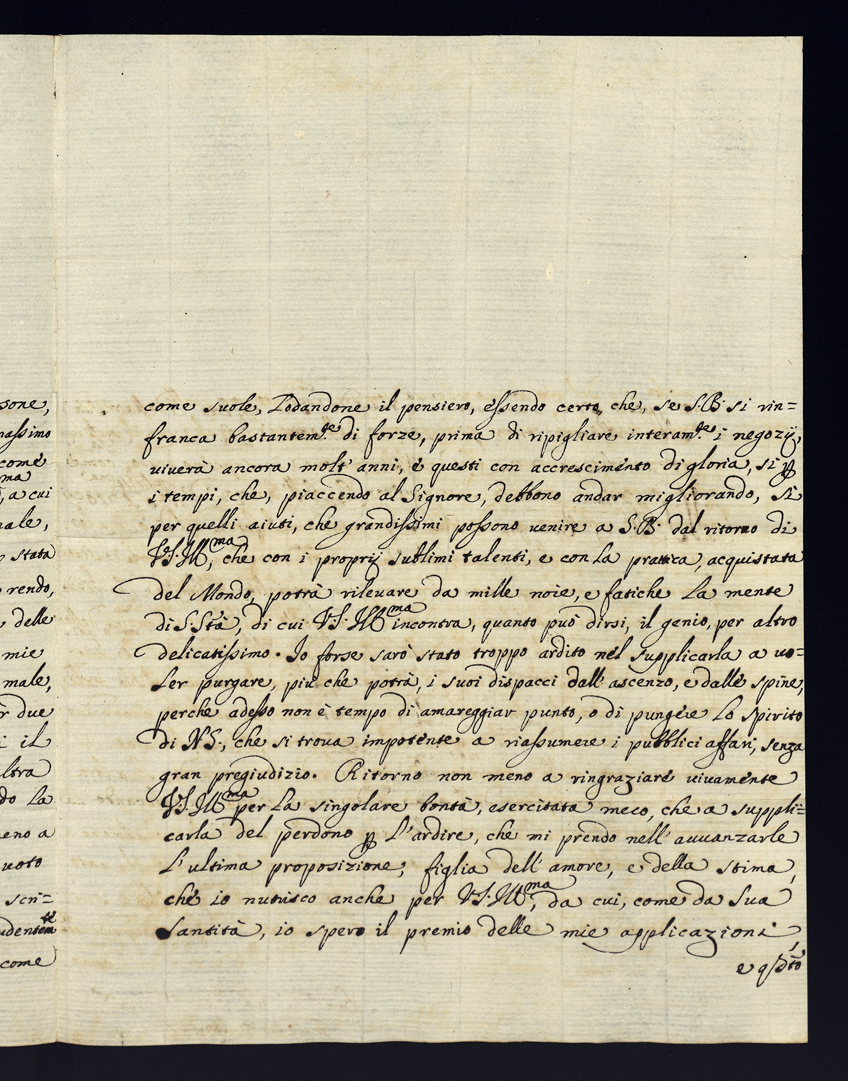 sone,
massimo
come
ma
, a cui
nale,
stata
rendo,
delle
mie
male,
r due
i il
ltra
do La
eno a
uoto
scri=
udentem.te
come
come suole, Lodandone il pensiero, essendo certo, che, se S.B. si rin=
franca bastantem.te di forze, prima di ripigliare interam.te i negozÿ,
viverà ancora molt'anni, e questi con accrescimento di gloria, sì ꝑ
i tempi, che, piaccendo al Signore, debbono andar migliorando, sì
per quelli aiuti, che grandissimi possono venire a S.B. dal ritorno di
V.S. Ill.ma, che con i proprÿ sublimi talenti, e con La prattica, acquistata
del Mondo, potrà rilevare da mille noie, e fatiche La mente
di S. Stà, di cui V.S. Ill.ma incontra, quanto può dirsi, il genio, per altro
delicatissimo. Io forse sarò stato troppo ardito nel supplicarla a vo=
Ler purgare, più che potrà, i suoi dispacci dall'ascenzo, e dalle spine,
perche adesso non è tempo di amareggiar punto, o di pungere Lo spirito
di N.S., che si trova impotente a riassumere i pubblici affari, senza
gran pregiudizio. Ritorno non meno a ringraziare vivamente
V.S. Ill.ma per La singolare bontà, esercitata meco, che a suppli=
carla del perdono ꝑ L'ardire, che mi prendo nell'avvanzarle
L'ultima proposizione, figlia dell'amore, e della stima,
che io nutrisco anche per V.S. Ill.ma, da cui, come da Sua
Santità, io spero il premio delle mie applicazioni,
e q.sto